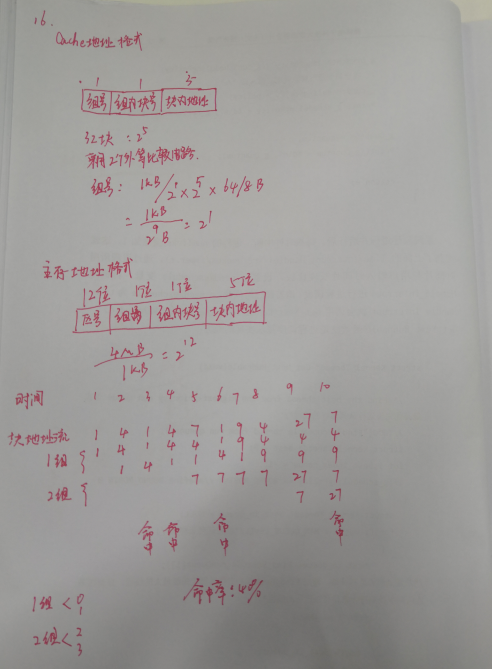 16.
Cache地址格式
1 1 5
组号 组内块号 块内地址
32块 = 2^5
采用2个外等比较电路.
组号: 1KB/2^1×2^5×64/8B
= 1KB/2^9B = 2^1
主存地址格式
12位 1位 1位 5位
区号 组号 组内块号 块内地址
4MB/1KB = 2^12
时间 1 2 3 4 5 6 7 8 9 10
块地址流 1 4 1 4 7 1 9 4 27 7
1组 { 1 4 1 4 4 1 9 4 4 4
1 4 1 1 4 1 9 9 9
2组 { 7 7 7 7 27 7
7 27
命中 命中 命中 命中
1组 < 0 1
命中率: 4%
2组 < 2 3